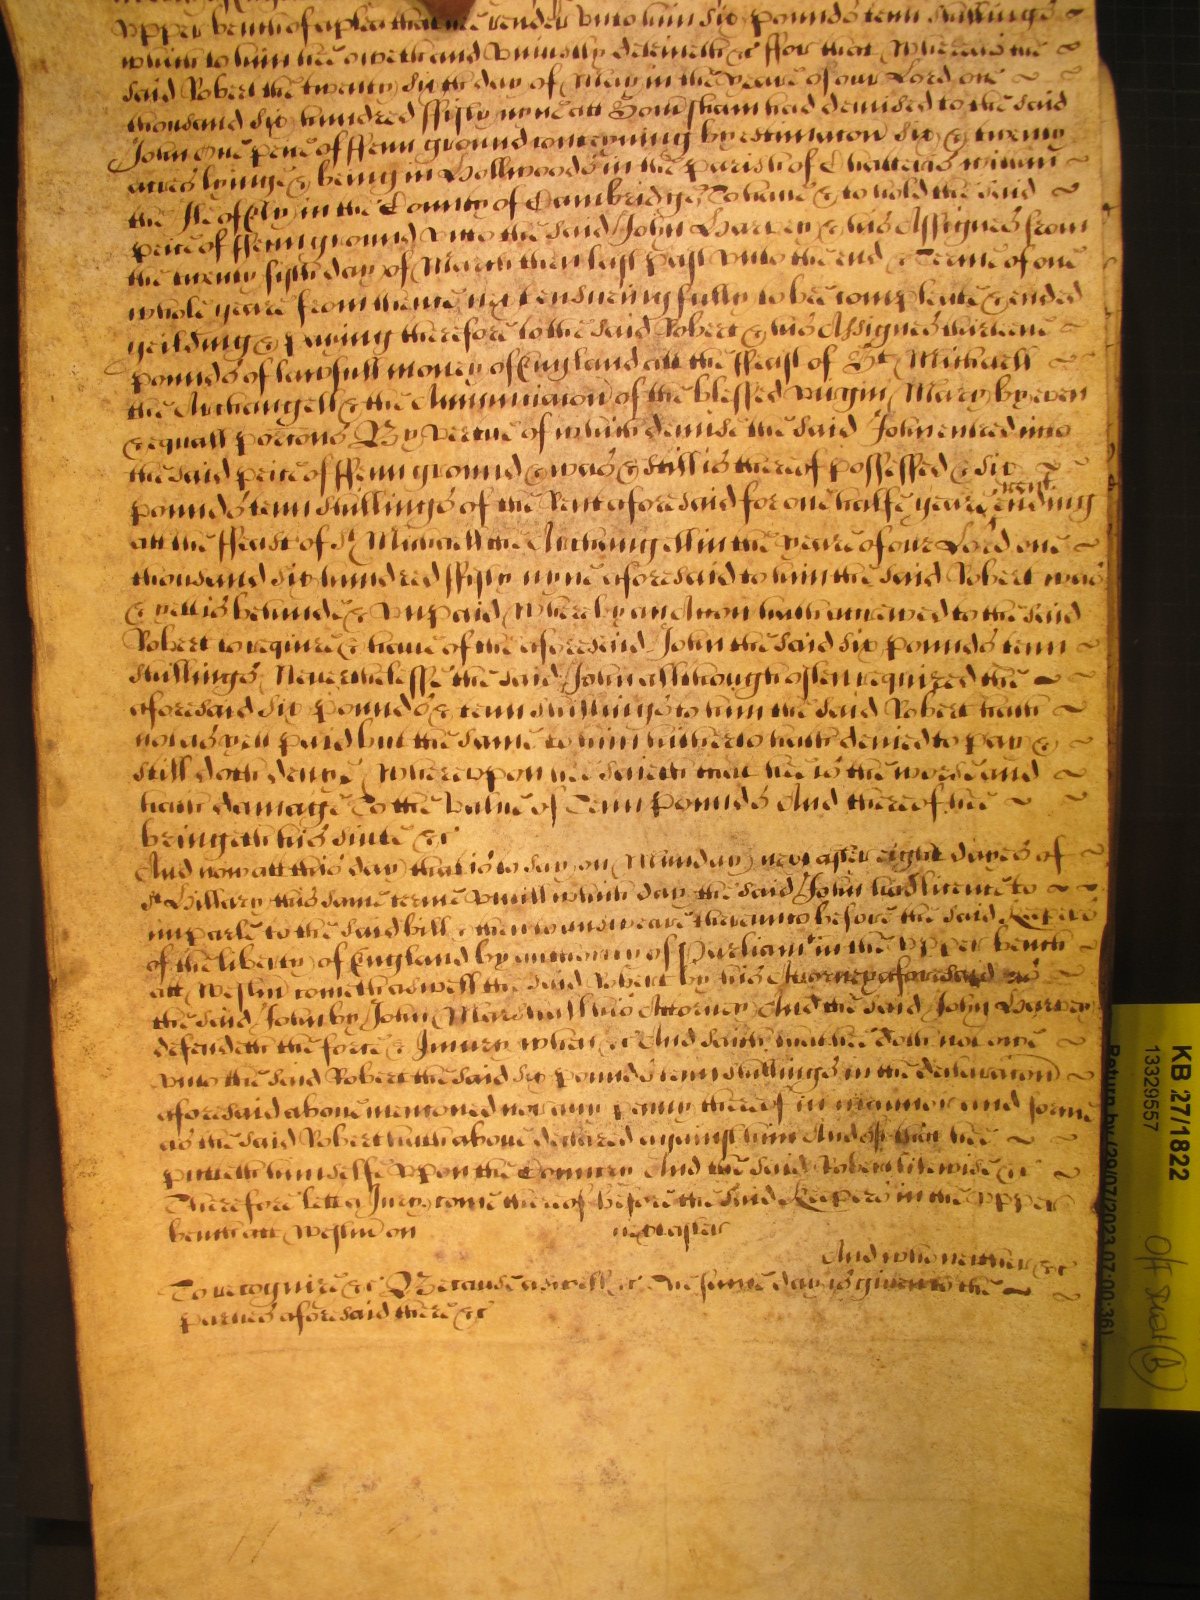 upper bench of a plea that he render unto him six pounds tenn shillings
which to him hee oweth and uniustly deteineth &c ffor that Whereas the
said Robert the twenty sixth day of May in the yeare of our Lord one
thousand six hundred ffifty nyne att Somersham had demised to the said
John One peice of ffenn ground conteyning by estimacon six & twenty
acres lyinge & being in Hollwoods in the parish of Chatteris within
the Ile of Ely in the County of Cambridge, To have & to hold the said
peice of ffenn ground unto the said John Harvey & his Assignes from
the twenty fifth day of March then last past unto the end & Terme of one
whole yeare from thence next ensueing fully to bee compleate & ended
yeilding & paying therefore to the said Robert & his Assignes thirteene
pounds of lawfull money of England att the ffeast of St Michaell
the Archangell & the Annunciacon of the blessed virgin Mary by even
& equall porcons By vertue of which demise the said John entred into
the said peice of ffenn ground & was & still is thereof possessed & six
pounds tenn shillings of the Rent aforesaid for one halfe yeare next ending
att the ffeast of St Michaell the Archangell in the yeare of our Lord one
thousand six hundred ffifty nyne aforesaid to him the said Robert was
& yett is behinde & unpaid Whereby an Accon hath accrewed to the said
Robert to require & have of the aforesaid John the said six pounds tenn
shillings Neverthelesse the said John allthough often required the
aforesaid six pounds & tenn shillings to him the said Robert hath
not as yett paid but the same to him hitherto hath denied to pay &
still doth denye Whereupon hee saieth that hee is the worse and
hath damage To the value of Tenn pounds And thereof hee
bringeth his suite &c
And now att this day that is to say on Munday next after eight dayes of
St Hillary this same terme untill which day the said John had licence to
imparle to the said bill & then to answeare thereunto before the said Keepers
of the liberty of England by authority of Parliamt in the upper bench
att Westm cometh aswell the said Robert by his Attorney aforesaid as
the said John by John Marshall his Attorney And the said John Harvey
defendeth the force & Iniury when &c And saith that hee doth not owe
unto the said Robert the said six pounds tenn shillings in the declaracon
aforesaid above mencioned nor any penny thereof in manner and forme
as the said Robert hath above declared against him And of that hee
putteth himselfe upon the Country And the said Robert likewise &c
Therefore lett a Jury come thereof before the said Keepers in the upper
bench att Westm on next after
And who neither &c
To recognize &c Because aswell &c The same day is given to the
parties aforesaid there &c
KB 27/1822
13329557
Return by (29/07/2023 07:00:36)